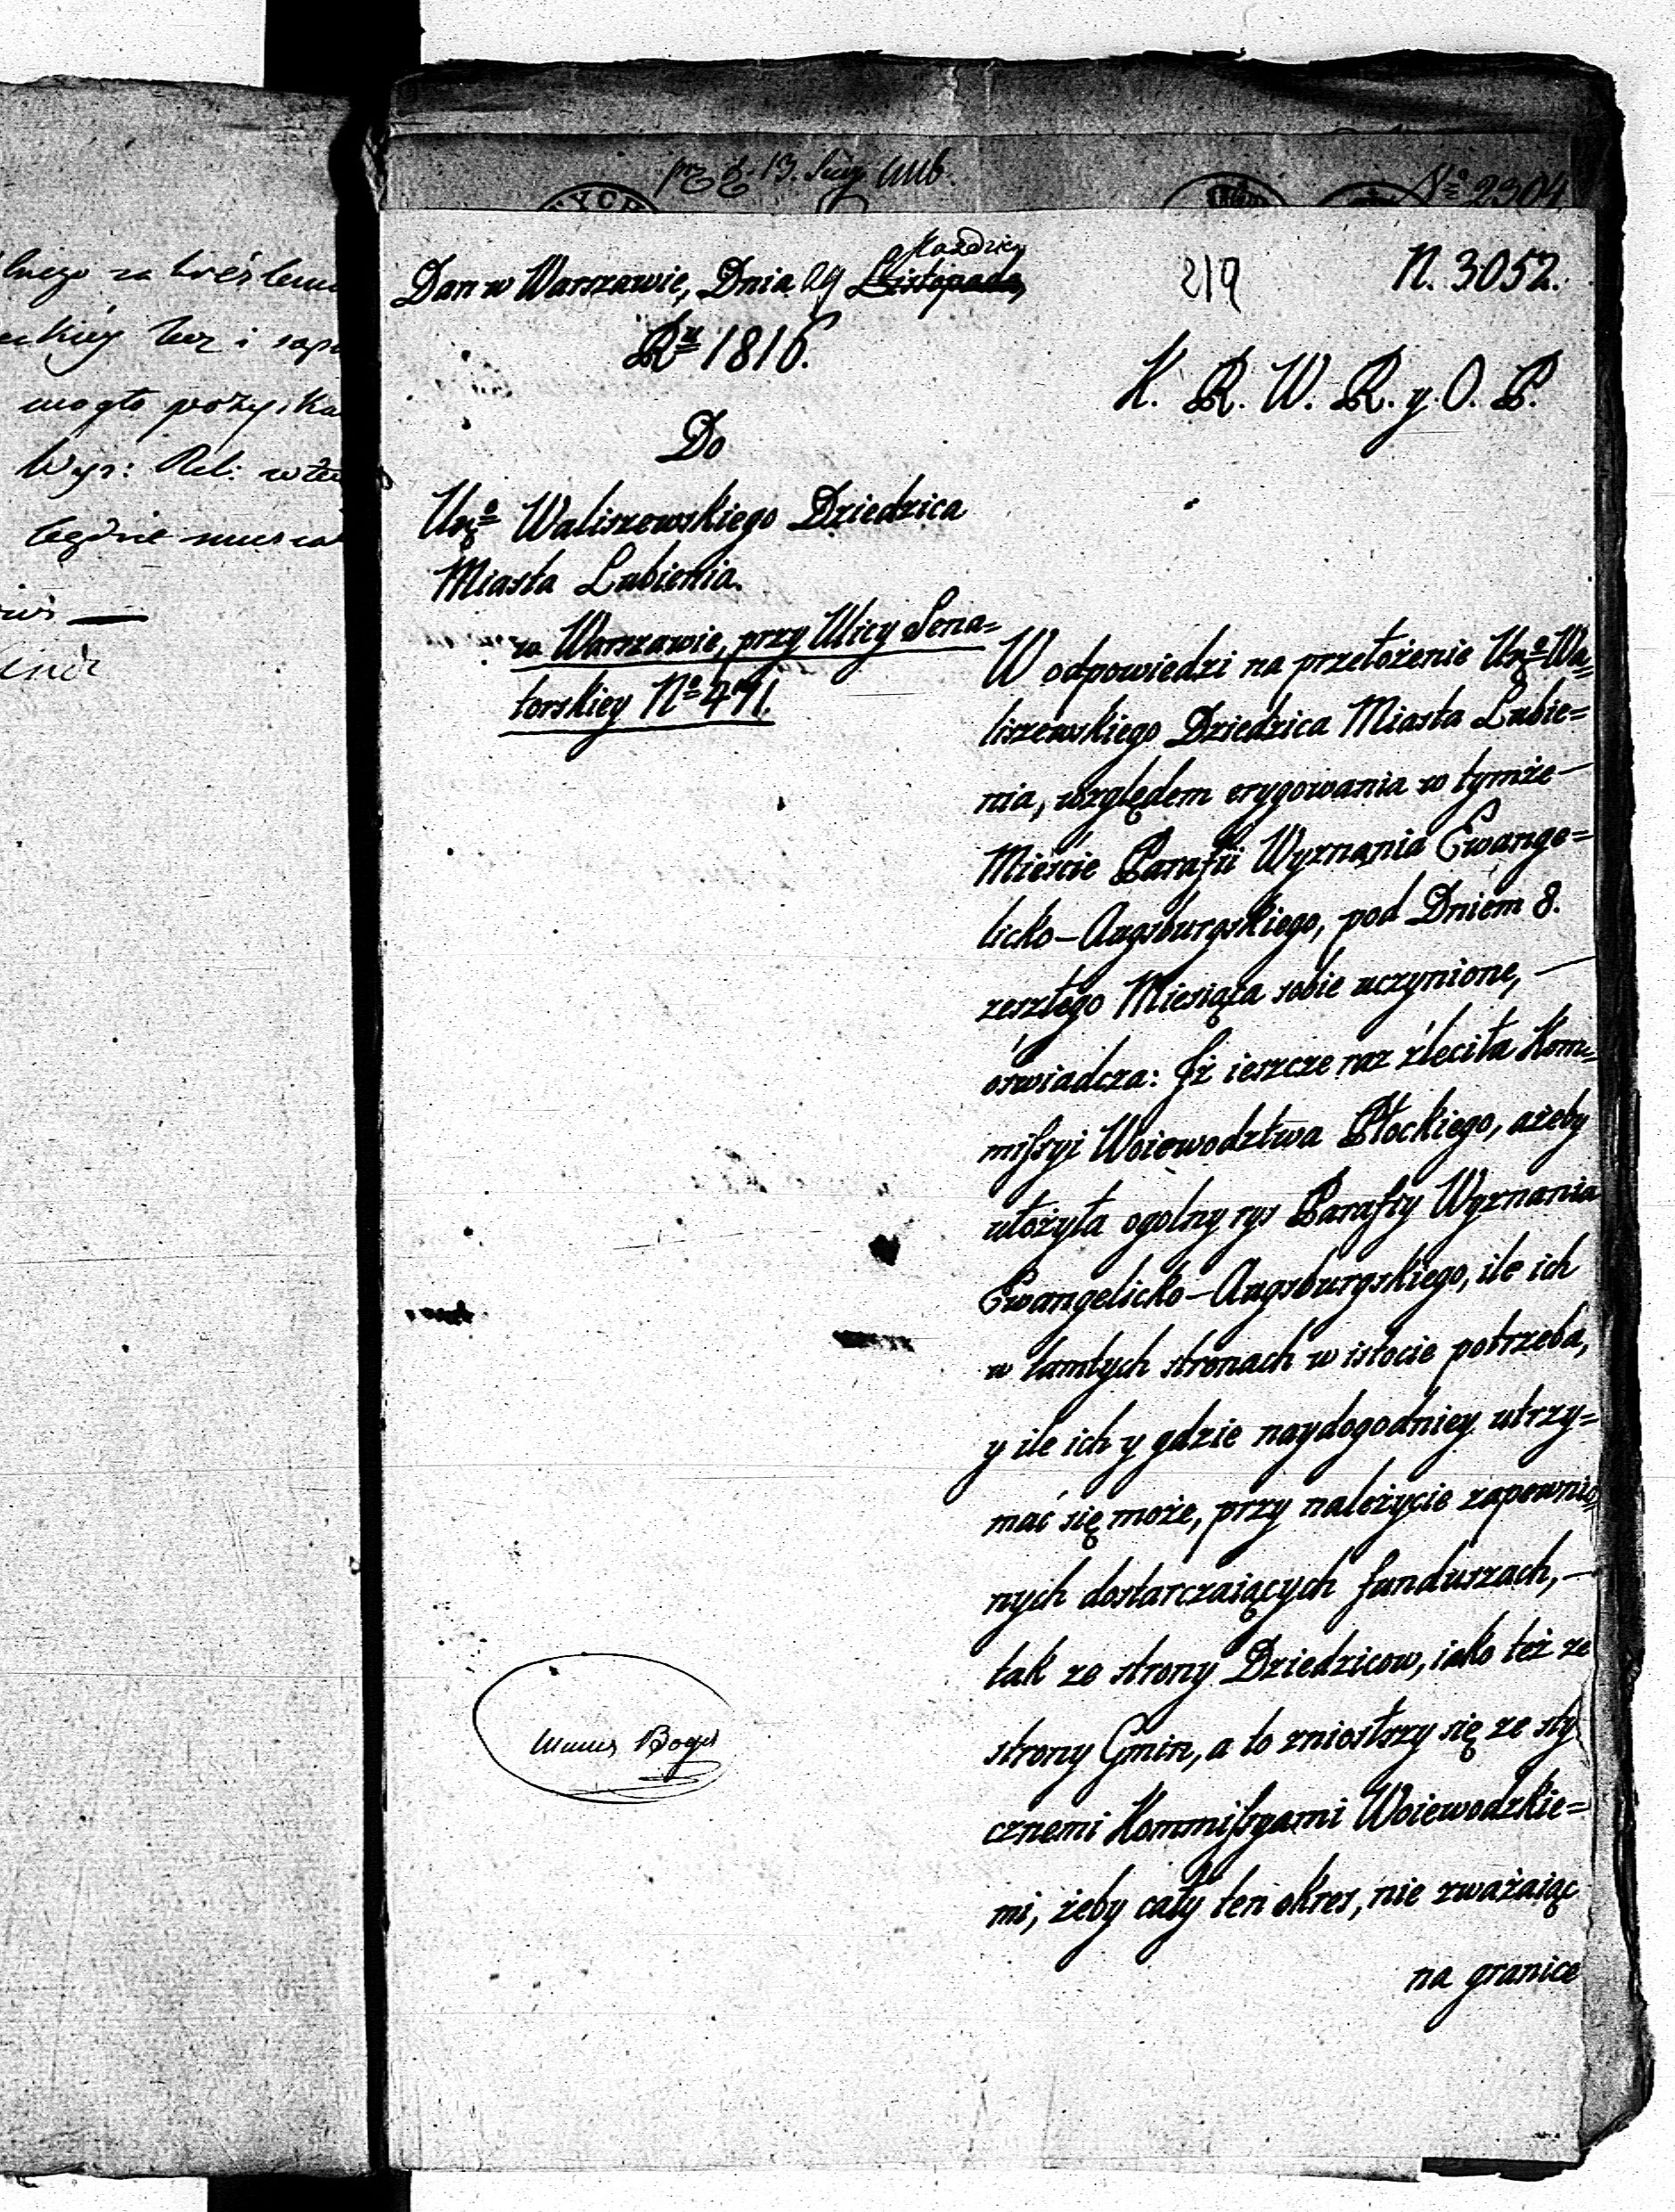 lnego za
i
mogło pozyska
Wyz: Rel:
będzie
N° 2304
Dan w Warszawie, Dnia 29 Listopada,
Ru 1816.
219
N. 3052.
K. R. W. R. y. O. P.
Do
Ur° Waliszewskiego Dziedzica
Miasta Lubienia.
w Warszawie, przy Ulicy Sena=
torskiey N° 471.
W odpowiedzi na przełożenie Ur° Wa=
liszewskiego Dziedzica Miasta Lubie=
nia, względem erygowania w tymże —
Mieście Parafii Wyznania Ewange=
licko—Augsburgskiego, pod Dniem 8.
zeszłego Miesiąca sobie uczynione, —
oświadcza: Iż ieszcze raz zleciła Kom=
missyi Woiewodztwa Płockiego, ażeby
ułożyła ogolny rys Parafiy Wyznania
Ewangelicko—Augsburgskiego, ile ich
w tamtych stronach w istocie potrzeba,
y ile ich y gdzie naydogodniey utrzy=
mać się może, przy należycie zapewnio=
nych dostarczaiących funduszach, —
tak ze strony Dziedzicow, iako też ze
strony Gmin, a to zniosłszy się ze sty
cznemi Kommissyami Woiewodzkie=
mi, żeby cały ten okres, nie zważaiąc
na granice